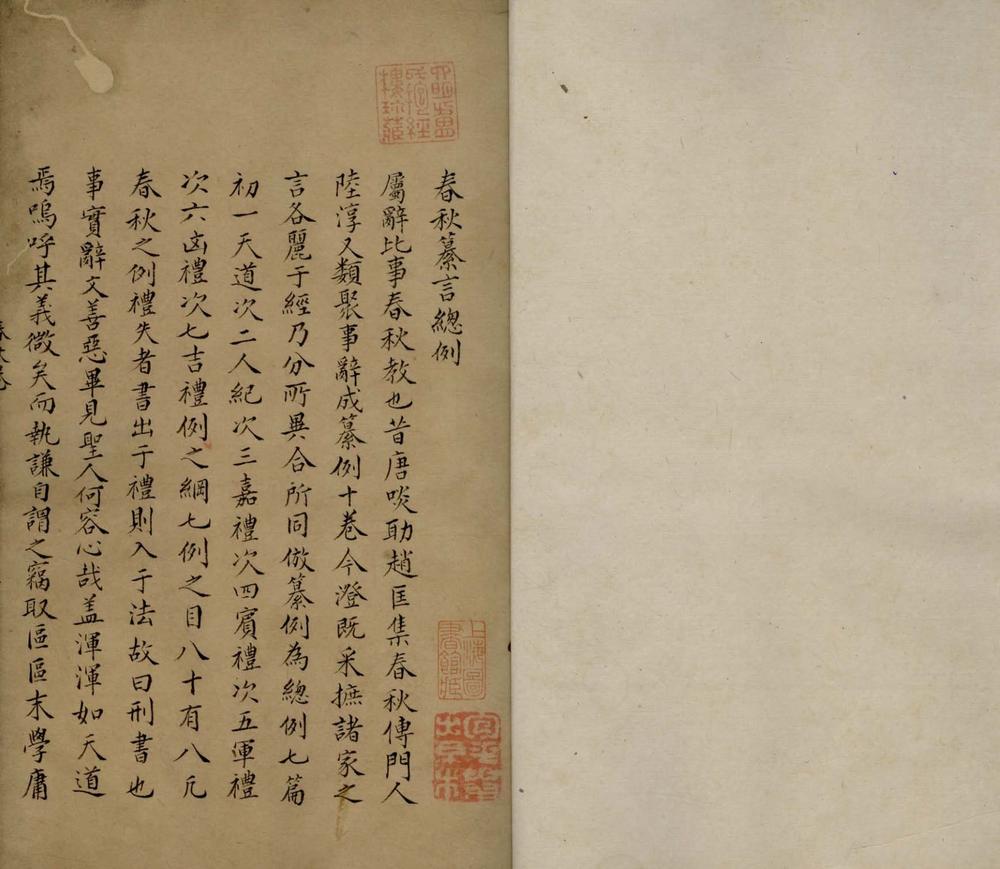 春秋纂言總例
屬辭比事春秋教也昔唐啖助趙匡集春秋傳門人
陸淳又類聚事辭成纂例十卷今澄既采摭諸家之
言各麗于經乃分所異合所同倣纂例為總例七篇
初一天道次二人紀次三嘉禮次四賓禮次五軍禮
次六凶禮次七吉禮例之綱七例之目八十有八凡
春秋之例禮失者書出于禮則入于法故曰刑書也
事實辭文善惡畢見聖人何容心哉盖渾渾如天道
焉嗚呼其義微矣而執謙自謂之竊取區區末學庸
上海圖
書館藏